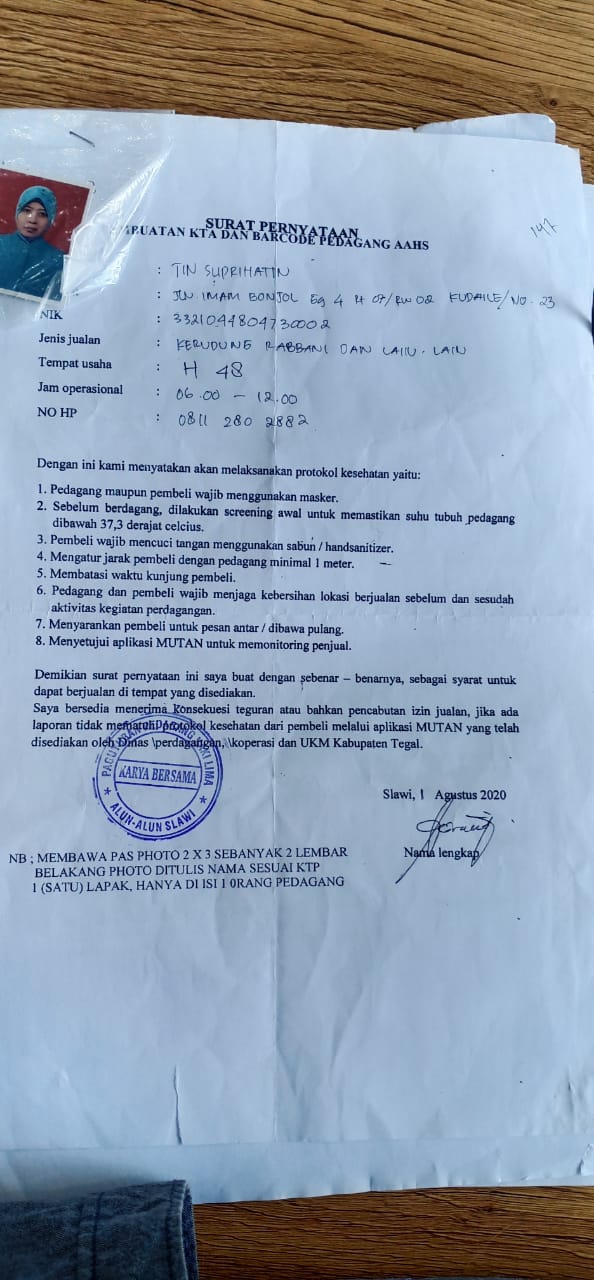 141
SURAT PERNYATAAN
BUATAN KTA DAN BARCODE PEDAGANG AAHS
: TIN SUPRIHATIN
: JLN. IMAM BONJOL Gg 4 Rt 07/RW 02 KUDAILE/NO. 23
NIK : 3321044804730002
Jenis jualan : KERUDUNG RABBANI DAN LAIN-LAIN
Tempat usaha : H 48
Jam operasional : 06.00 - 12.00
NO HP : 0811 280 2882
Dengan ini kami menyatakan akan melaksanakan protokol kesehatan yaitu:
1. Pedagang maupun pembeli wajib menggunakan masker.
2. Sebelum berdagang, dilakukan screening awal untuk memastikan suhu tubuh pedagang
dibawah 37,3 derajat celcius.
3. Pembeli wajib mencuci tangan menggunakan sabun / handsanitizer.
4. Mengatur jarak pembeli dengan pedagang minimal 1 meter.
5. Membatasi waktu kunjung pembeli.
6. Pedagang dan pembeli wajib menjaga kebersihan lokasi berjualan sebelum dan sesudah
aktivitas kegiatan perdagangan.
7. Menyarankan pembeli untuk pesan antar / dibawa pulang.
8. Menyetujui aplikasi MUTAN untuk memonitoring penjual.
Demikian surat pernyataan ini saya buat dengan sebenar – benarnya, sebagai syarat untuk
dapat berjualan di tempat yang disediakan.
Saya bersedia menerima konsekuesi teguran atau bahkan pencabutan izin jualan, jika ada
laporan tidak mematuhi protokol kesehatan dari pembeli melalui aplikasi MUTAN yang telah
disediakan oleh Dinas \perdagangan,\\koperasi dan UKM Kabupaten Tegal.
KARYA BERSAMA
ALUN-ALUN SLAWI
Slawi, 1 Agustus 2020
Nama lengkap
NB ; MEMBAWA PAS PHOTO 2 X 3 SEBANYAK 2 LEMBAR
BELAKANG PHOTO DITULIS NAMA SESUAI KTP
1 (SATU) LAPAK, HANYA DI ISI 1 0RANG PEDAGANG